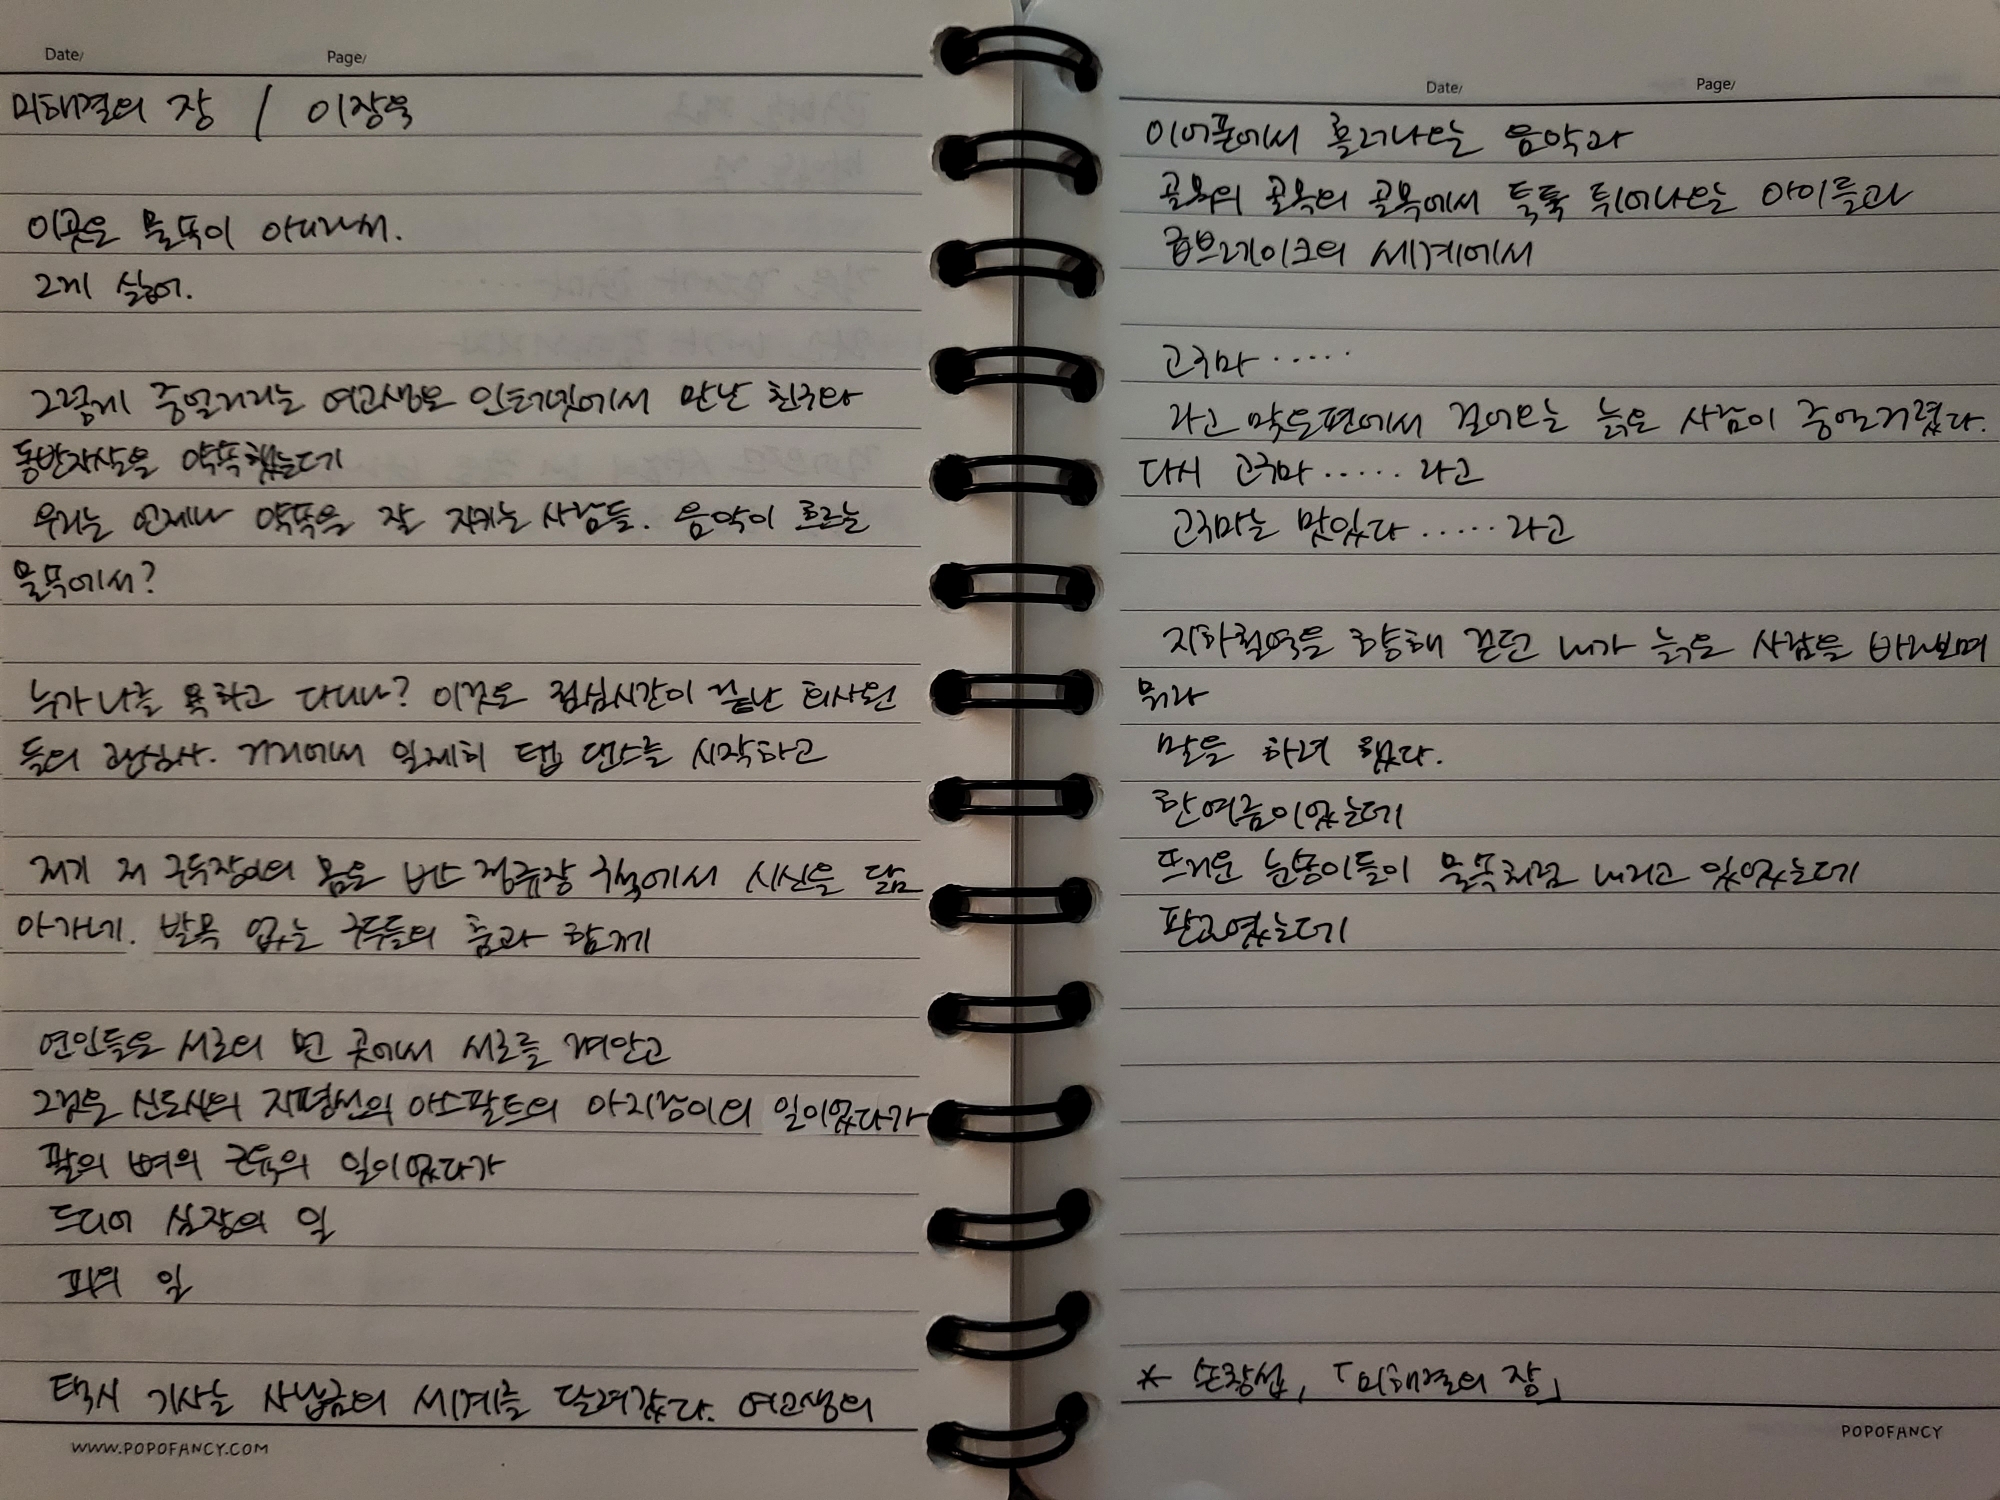 Date/ Page/
미해결의 장 / 이장욱
이곳은 물뚝이 아니라서.
그게 싫어.
그렇게 중얼거리는 여고생은 인터넷에서 만난 친구와
동반자살을 약속했는데
우리는 언제나 약속을 잘 지키는 사람들. 음악이 흐르는
물뚝에서?
누가 나를 욕하고 다니나? 이것은 점심시간이 끝난 회사원
들의 관심사. 거리에서 일제히 탭 댄스를 시작하고
저기 저 구두장이의 몸은 버스 정류장 구석에서 시신을 닮
아가네. 발목 없는 구두들의 춤과 함께
연인들은 서로의 먼 곳에서 서로를 껴안고
그것은 신도시의 지평선의 아스팔트의 아지랑이의 일이었다가
팔의 뼈의 근육의 일이었다가
드디어 심장의 일
피의 일
택시 기사는 사납금의 세계를 달려갔다. 여고생의
WWW.POPOFANCY.COM
Date/ Page/
이어폰에서 흘러나오는 음악과
골목의 골목의 골목에서 툭툭 튀어나오는 아이들과
급브레이크의 세계에서
고구마 .....
라고 맞은편에서 걸어오는 늙은 사람이 중얼거렸다.
다시 고구마 ..... 라고
고구마는 맛있다 ..... 라고
지하철역을 향해 걷던 내가 늙은 사람을 바라보며
뭐라
말을 하려 했다.
한여름이었는데
뜨거운 눈송이들이 물뚝처럼 내리고 있었는데
판교였는데
* 손창섭, 「미해결의 장」
POPOFANCY